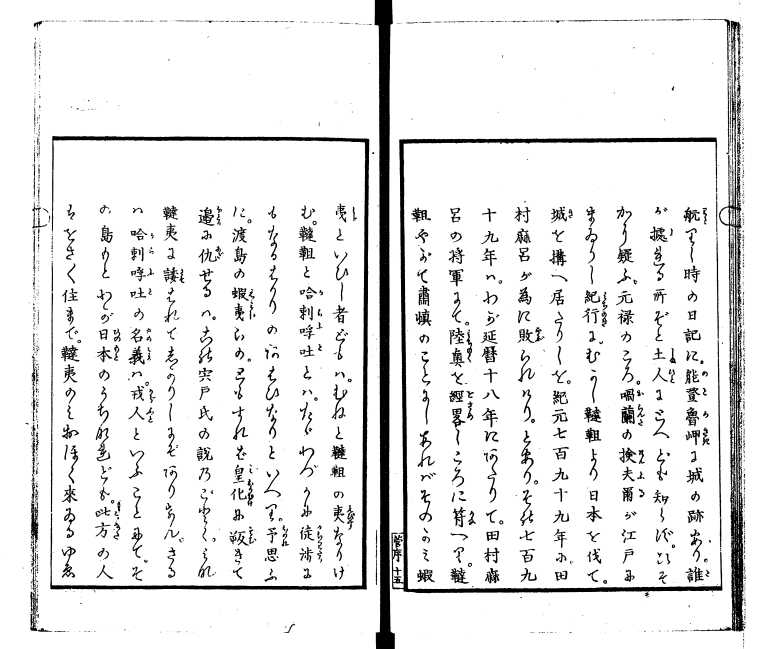 航りし時の日記に。能登魯岬に城の跡あり。誰
が據れる所ぞと土人にとへども知らず。いぶ
かり疑ふ。元禄のころ。喎蘭の撿夫爾が江戸に
まゐりし紀行に。むかし韃靼より日本を伐て。
城を搆へ居たりしを。紀元七百九十九年に田
村麻呂が為に敗られけり。とあり。そは七百九
十九年ハ。わが延暦十八年にあたりて。田村麻
呂の将軍にて。陸奥を經畧しころに符へり。韃
靼やがて肅慎のことにしあれバそのかみ蝦
夷といひし者どもハ。むねと韃靼の夷なりけ
む。韃靼と哈剌呼吐とハ。たゞわづかに徒渉に
もなるばかりのあはひなりといへり。予思ふ
に。渡島の蝦夷らの。ともすれば皇化に皈きて
邊に仇せるハ。宍戸氏の説の如く。これ
韃夷に諉されてしかりしにぞありなん。さる
ハ哈剌呼吐の名義ハ。戎人といふことにて。そ
の島もとわが日本のうちなれども。此方の人
住まで。韃夷のミおほく來ゐるゆゑ
菅序 十五